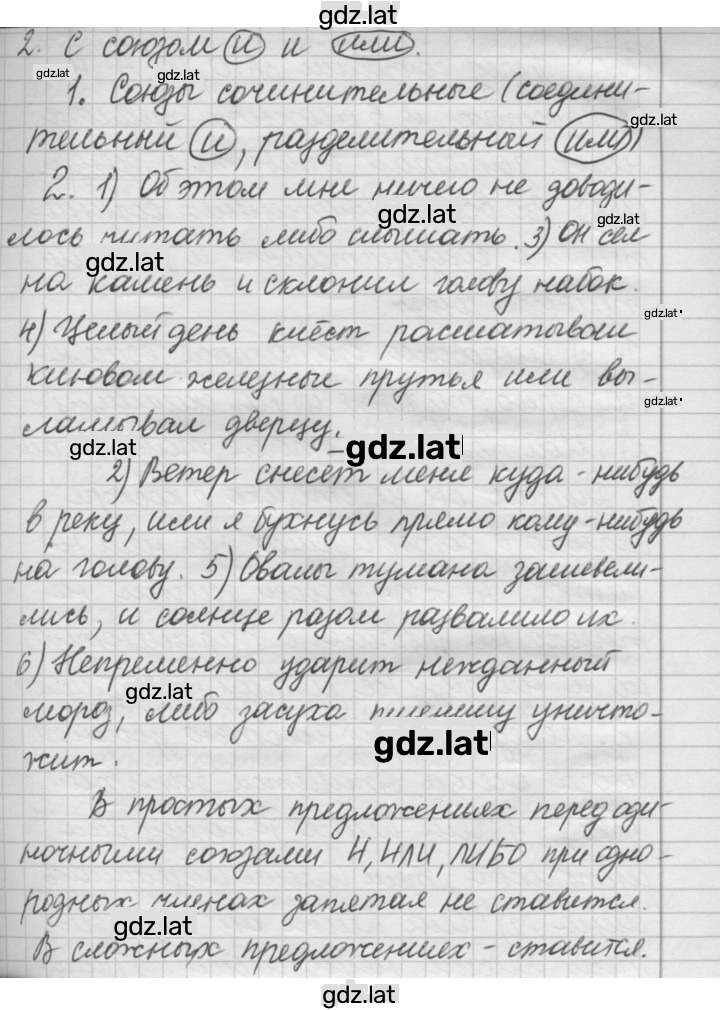 gdz.lat
2. С союзом и и или.
gdz.lat gdz.lat
1. Союзы сочинительные (соедини-
gdz.lat
тельный и, разделительный или)
2. 1) Об этом мне ничего не доводи-
gdz.lat gdz.lat
лось читать либо слышать. 3) Он сел
gdz.lat
на камень и склонил голову набок.
gdz.lat
4) Целый день клёст расшатывал
клювом железные прутья или вы-
gdz.lat
ламывал дверцу.
gdz.lat gdz.lat
2) Ветер снесет меня куда-нибудь
в реку, или я бухнусь прямо кому-нибудь
на голову. 5) Овалы тумана зашевели-
лись, и солнце разом развалило их.
6) Непременно ударит нежданный
gdz.lat
мороз, либо засуха пшеницу уничто-
gdz.lat
жит.
В простых предложениях перед оди-
ночными союзами И, ИЛИ, ЛИБО при одно-
родных членах запятая не ставится.
gdz.lat
В сложных предложениях - ставится.
gdz.lat